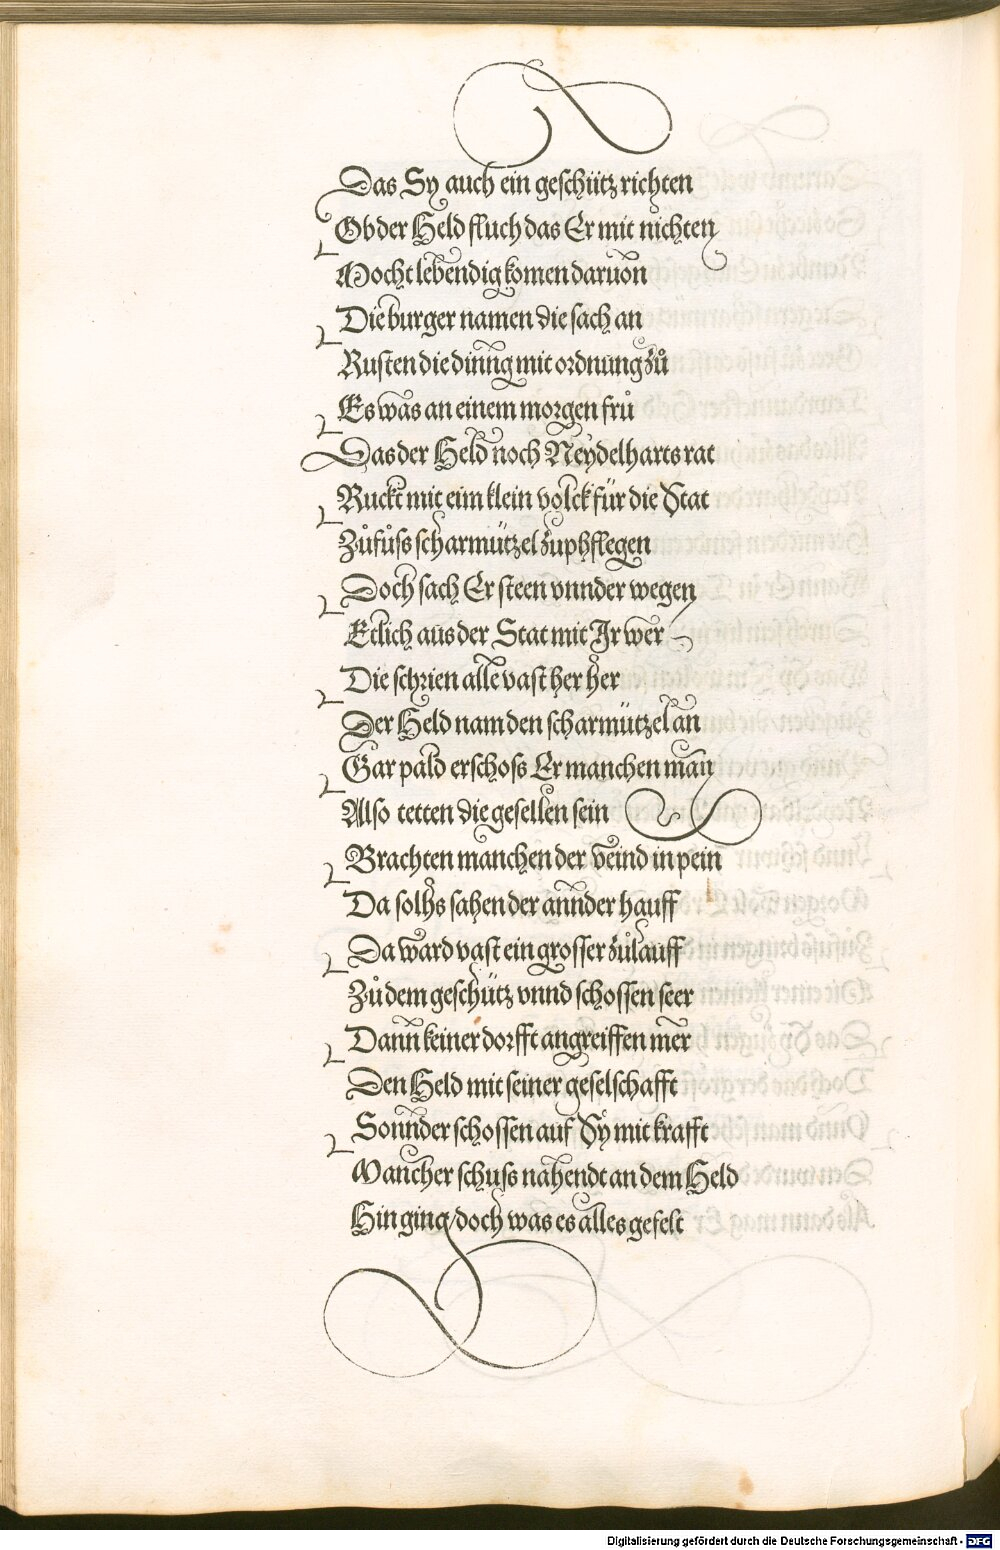 Das Sy auch ein geschütz richten
Ob der Held fluch das Er mit nichten
Mocht lebendig komen daruon
Die burger namen die sach an
Rusten die dinng mit ordnung zů
Es was an einem morgen frů
Das der Held noch Neydelharts rat
Ruckt mit eim klein volck für die Stat
Zůfůss scharmützel zuphflegen
Doch sach Er steen vnnder wegen
Etlich aus der Stat mit Jr wer
Die schrien alle vast her her
Der Held nam den scharmützel an
Gar pald erschoss Er manchen man
Also tetten die gesellen sein
Brachten manchen der veind in pein
Da solhs sahen der annder hauff
Da ward vast ein grosser zůlauff
Zů dem geschütz vnnd schossen seer
Dann keiner dorfft angreiffen mer
Den Held mit seiner geselschafft
Sonnder schossen auf Sy mit krafft
Mancher schuss nahendt an dem Held
Hin ging/doch was es alles gefelt
Digitalisierung gefördert durch die Deutsche Forschungsgemeinschaft - DFG